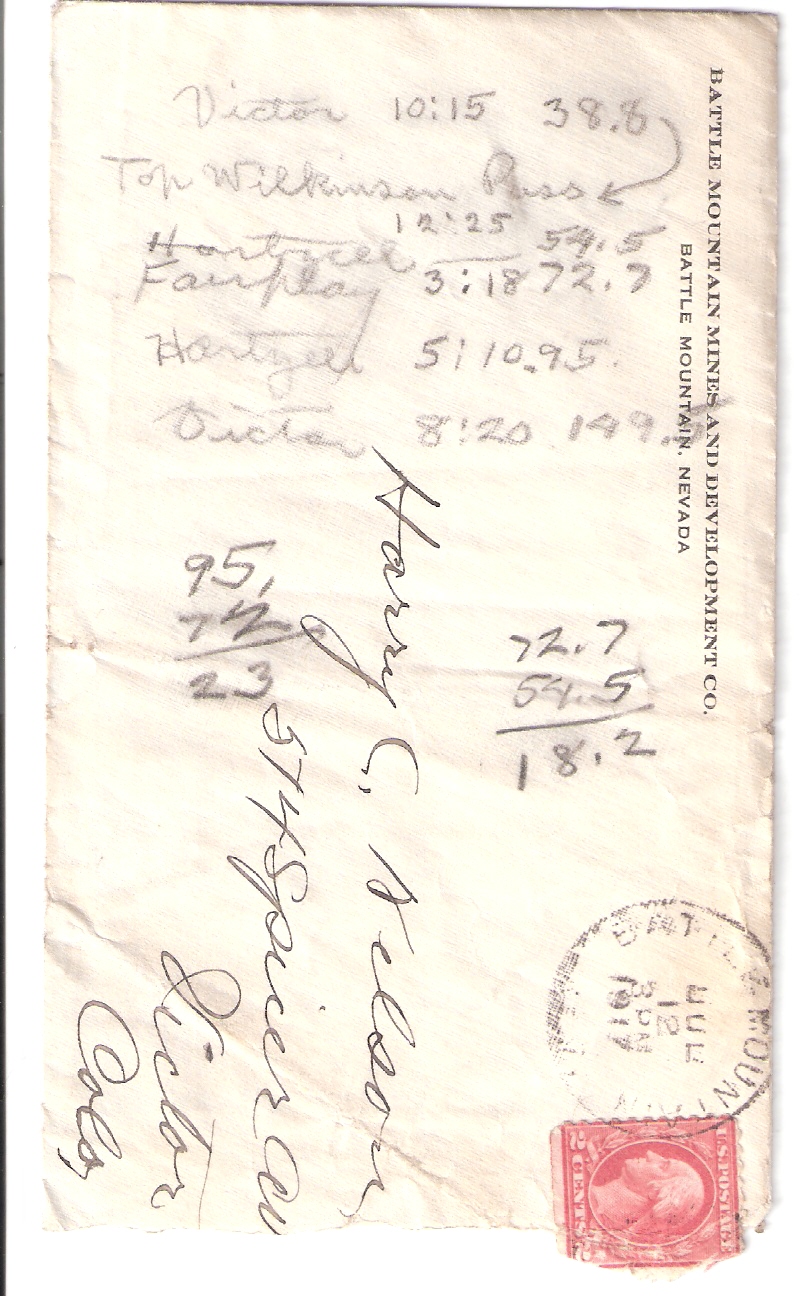 Victor 10:15 38.8
Top Wilkinson Pass
12:25
Hartzell 54.5
Fairplay 3:18 72.7
Hartzell 5:10. 95.
Victor 8:20 149.
95,
72
23
72.7
54.5
18.2
BATTLE MOUNTAIN MINES AND DEVELOPMENT CO.
BATTLE MOUNTAIN, NEVADA
Harry C. Nelson
574 Spicer Av
Victor
Colo,
BATTLE MOUNTAIN
12
3 PM
U.S. POSTAGE
2 CENTS 2